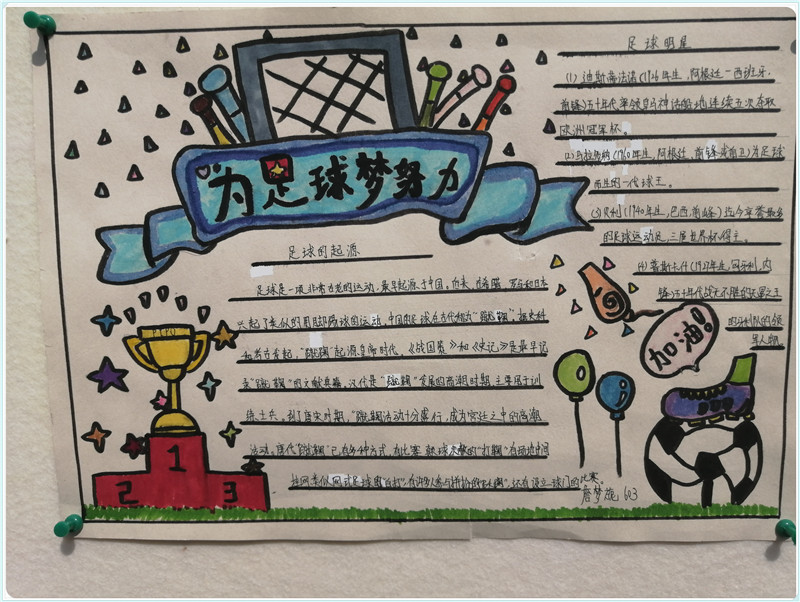 为足球梦努力
足球的起源
足球是一项非常古老的运动,最早起源于中国。后来,古希腊、罗马和日本
兴起了类似的用脚踢球的运动,中国足球在古代称为“蹴鞠”,据史料
和考古看起,“蹴鞠”起源自商时代。《战国策》和《史记》是最早记
录“蹴鞠”的文献典籍,汉代是“蹴鞠”发展的高潮时期,主要用于训
练士兵,到了唐宋时期,“蹴鞠活动十分盛行,成为宫廷之中的高潮
活动。唐代“蹴鞠”已有多种方式,有比赛
还有设立球门的比赛。
足球明星
(1)迪斯蒂法诺(1926年生,阿根廷—西班牙,
前锋)五十年代率领皇马神话般地连续五次夺取
欧洲冠军杯。
(2)马拉多纳(1960年生,阿根廷,前锋或前卫)为足球
而生的一代球王。
(3)贝利(1940年生,巴西,前锋)迄今享誉最多
的足球运动员,三届世界杯得主。
(4)普斯卡什(1927年生,匈牙利,内
锋)五十年代战无不胜的
的匈牙利队的领
导人物。
加油!
1
2
3
詹梦旎 603